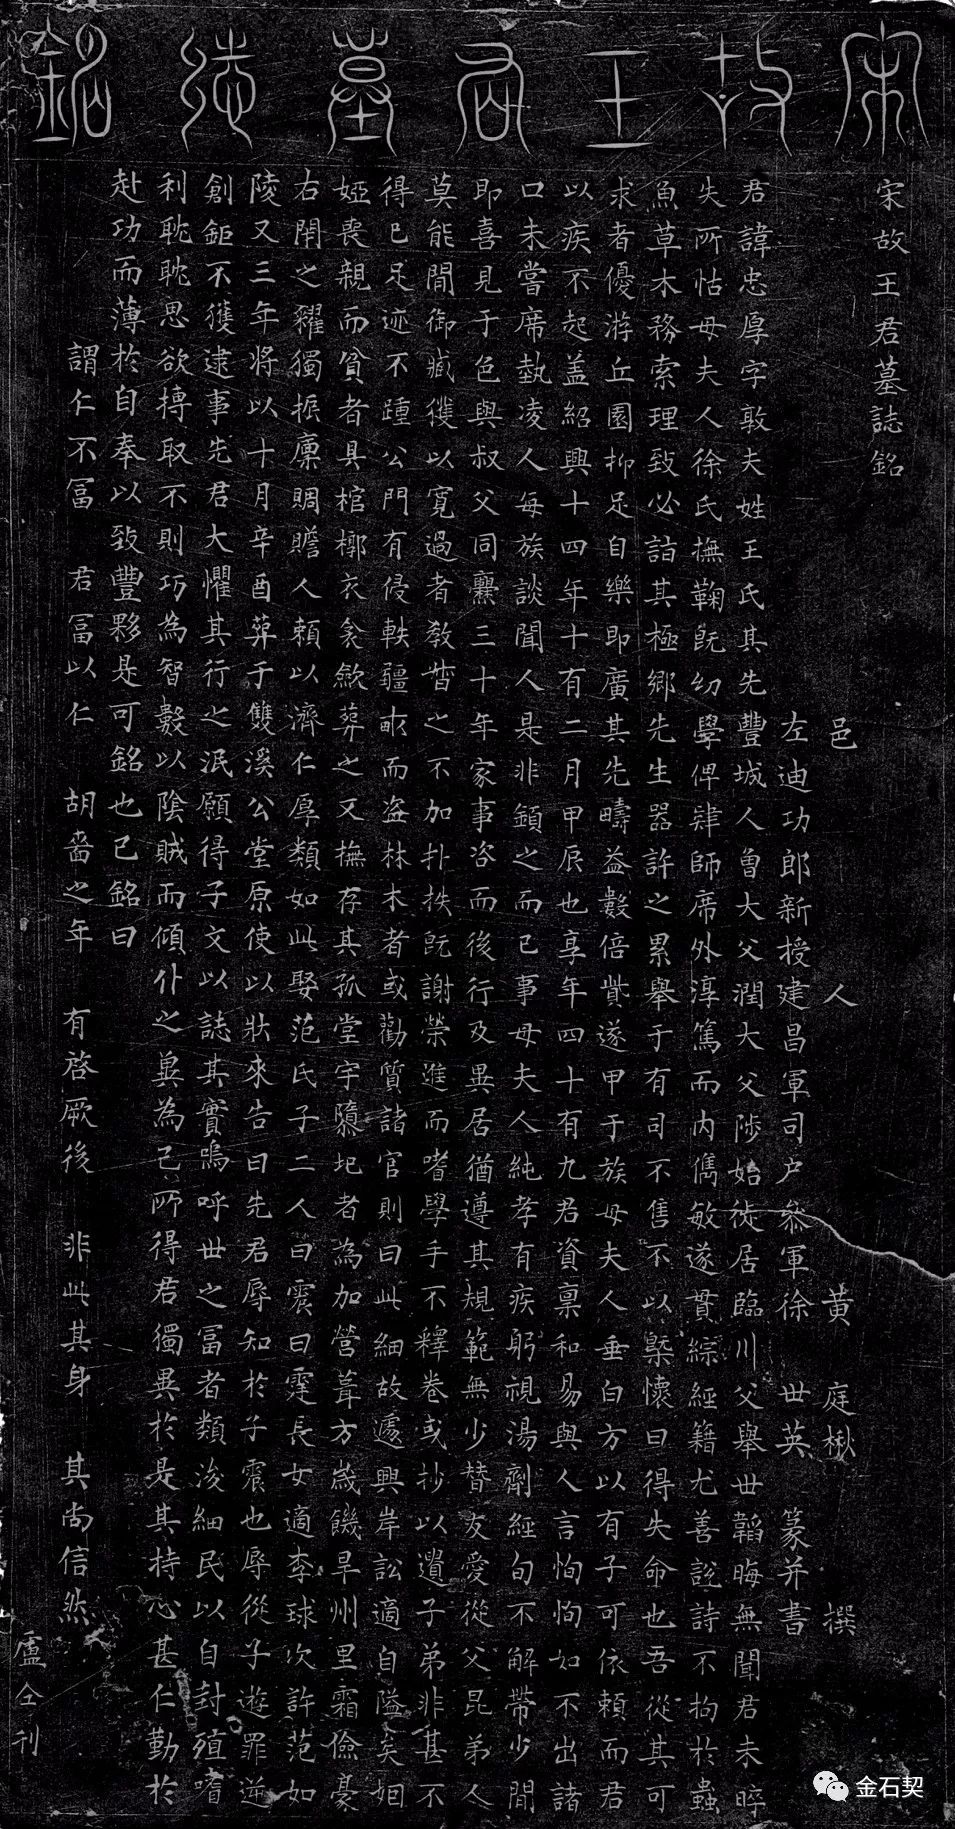 宋故王君墓誌銘
宋故王君墓誌銘
邑人黃庭楸撰
左迪功郎新授建昌軍司户叅軍徐世英篆并書
君諱忠厚字敦夫姓王氏其先豐城人曾大父潤大父陟始徙居臨川父舉世韜晦無聞君未晬
失所怙母夫人徐氏撫鞠旣幼學俾肄師席外淳篤而内儁敏遂貫綜經籍尤善說詩不拘於蟲
魚草木務索理致必詣其極鄉先生器許之累舉于有司不售不以槩懷曰得失命也吾從其可
求者優游丘園抑足自樂即廣其先疇益數倍貲遂甲于族母夫人垂白方以有子可依賴而君
以疾不起盖紹興十四年十有二月甲辰也享年四十有九君資稟和易與人言恂恂如不出諸
口未嘗席埶凌人每族談聞人是非頷之而已事母夫人純孝有疾躬視湯劑經旬不解帶少間
即喜見于色與叔父同爨三十年家事咨而後行及異居猶遵其規範無少替友愛從父昆弟人
莫能間御臧獲以寬過者敎督之不加扑抶旣謝榮進而嗜學手不釋卷或抄以遺子弟非甚不
得已足迹不踵公門有侵軼疆畎而盗林木者或勸質諸官則曰此細故遽興岸訟適自隘矣姻
婭喪親而貧者具棺槨衣衾歛葬之又撫存其孤堂宇隳圮者為加營葺方嵗饑旱州里霜儉豪
右閉之糴獨振廪賙贍人賴以濟仁厚類如此娶范氏子二人曰震曰霆長女適李球次許范如
陵又三年將以十月辛酉葬于雙溪公堂原使以狀來告曰先君辱知於子震也辱從子遊罪逆
創鉅不獲逮事先君大懼其行之泯願得子文以誌其實嗚呼世之冨者類浚細民以自封殖嗜
利眈眈思欲摶取不則巧為智數以陰賊而傾仆之兾為己所得君獨異於是其持心甚仁勤於
赴功而薄於自奉以致豐夥是可銘也已銘曰
謂仁不冨 君冨以仁 胡嗇之年 有啓厥後 非此其身 其尚信然
盧仝刊
金石契